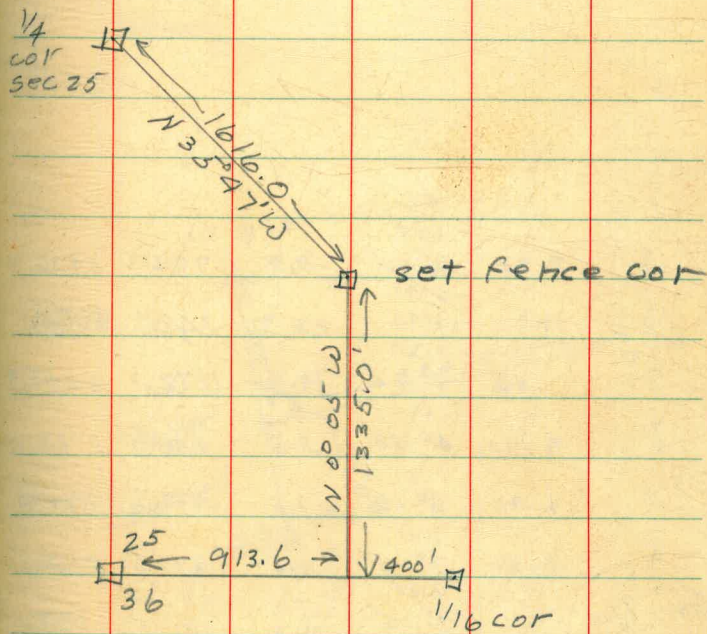 1/4
cor
sec 25
1616.0
N 35° 47' W
set fence cor
N 0° 05' W
1335.0'
25
913.6
400'
36
1/16 cor